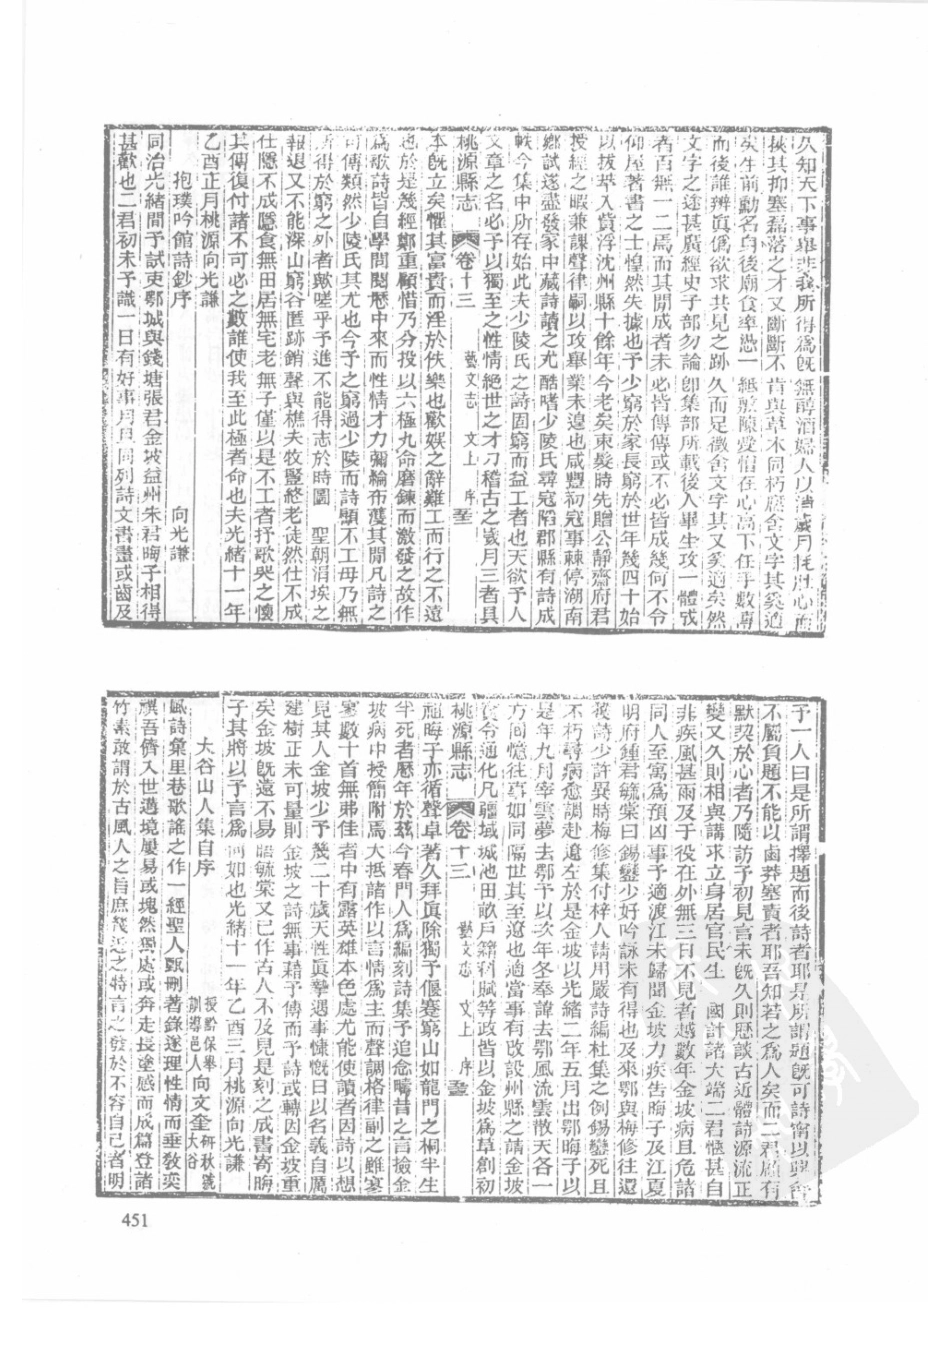 久知天下事舉非我所得爲既無醇酒婦人以消歲月耗壯心而
挾其抑塞磊落之才又斷斷不肯與草木同朽腐舍文字其奚適
矣生前勳名身後廟食率憑一紙數陳愛憎在心高下任手數尊
而後誰辨眞僞欲求共見之跡久而足徵舍文字其又奚適矣然
文字之途甚廣經史子部勿論卽集部所載後人畢生攻一體或
者百無一二焉而其開成者未必皆傳傳或不必皆成幾何不令
仰屋著書之士惶然失據也予少窮於家長窮於世年幾四十始
以拔萃入貲浮沈州縣十餘年今老矣束髮時先贈公靜齋府君
授經之暇兼課聲律嗣以攻舉業未遑也咸豐初寇事棘停湖南
鄉試遂盡發家中藏詩讀之尤酷嗜少陵氏尋寇陷郡縣有詩成
帙今集中所存始此夫少陵氏之詩固窮而益工者也天欲予人
文章之名必予以獨至之性情絕世之才力稽古之歲月三者具
桃源縣志 卷十三 藝文志 文上 序
本既立矣懼其富貴而淫於佚樂也歡娛之辭難工而行之不遠
也於是幾經鄭重顧惜乃分投以六極九命磨鍊而激發之故作
爲歌詩皆自學問閱歷中來而性情才力彌綸布濩其間凡詩之
可傳類然少陵氏其尤也今予之窮過少陵而詩顧不工毋乃無
所得於窮之外者歟嗟乎予進不能得志於時圖 聖朝涓埃之
報退又不能深山窮谷匿跡銷聲與樵夫牧豎終老徒然仕不成
仕隱不成隱食無田居無宅老無子僅以是不工者抒歌哭之懷
其傳復付諸不可必之數誰使我至此極者命也夫光緒十一年
乙酉正月桃源向光謙
抱璞吟館詩鈔序 向光謙
同治光緒間予試吏鄂城與錢塘張君金坡益州朱君晦子相得
甚歡也二君初未予識一日有好事月旦同列詩文書畫或齒及
予一人曰是所謂擇題而後詩者耶是所謂題既可詩甯以與會
不屬負題不能以鹵莽塞責者耶吾知若之爲人矣而二君顧有
默契於心者乃隨訪予初見言未既久則歷談古近體詩源流正
變又久則相與講求立身居官民生 國計諸大端二君愜甚自
非疾風甚雨及于役在外無三日不見者越數年金坡病且危諸
同人至寓爲預凶事予適渡江未歸聞金坡力疾告晦子及江夏
明府鍾君毓棠曰錫鑾少好吟詠未有得也及來鄂與梅修往還
後詩少許異時梅修集付梓人請用嚴詩編杜集之例錫鑾死且
不朽尋病愈調赴遼左於是金坡以光緒二年五月出鄂晦子以
是年九月宰雲夢去鄂予以次年冬奉諱去鄂風流雲散天各一
方回憶往事如同隔世其至遼也適當事有改設州縣之請金坡
實令通化凡疆域城池田畝戶籍科賦等政皆以金坡爲草創初
桃源縣志 卷十三 藝文志 文上 序
祖晦子亦循聲卓著久拜眞除獨予偃蹇窮山如龍門之桐半生
半死者歷年於茲今春門人爲編刻詩集予追念疇昔之言撿金
坡病中授簡附焉大抵諸作以言情爲主而聲調格律副之雖寥
寥數十首無弗佳者中有露英雄本色處尤能使讀者因詩以想
見其人金坡少予幾二十歲天性眞摯遇事慷慨日以名義自厲
建樹正未可量則金坡之詩無事藉予傳而予詩或轉因金坡重
矣金坡既遠不易晤毓棠又已作古人不及見是刻之成書寄晦
子其將以予言爲何如也光緒十一年乙酉三月桃源向光謙
大谷山人集自序 授黔保舉訓導邑人向文奎硏秋號大谷
風詩彙里巷歌謠之作一經聖人甄刪著錄遂理性情而垂敎奕
禩吾儕入世遘境屢易或塊然獨處或奔走長塗感而成篇登諸
竹素敢謂於古風人之旨庶幾近之特言之發於不容自已者明
451